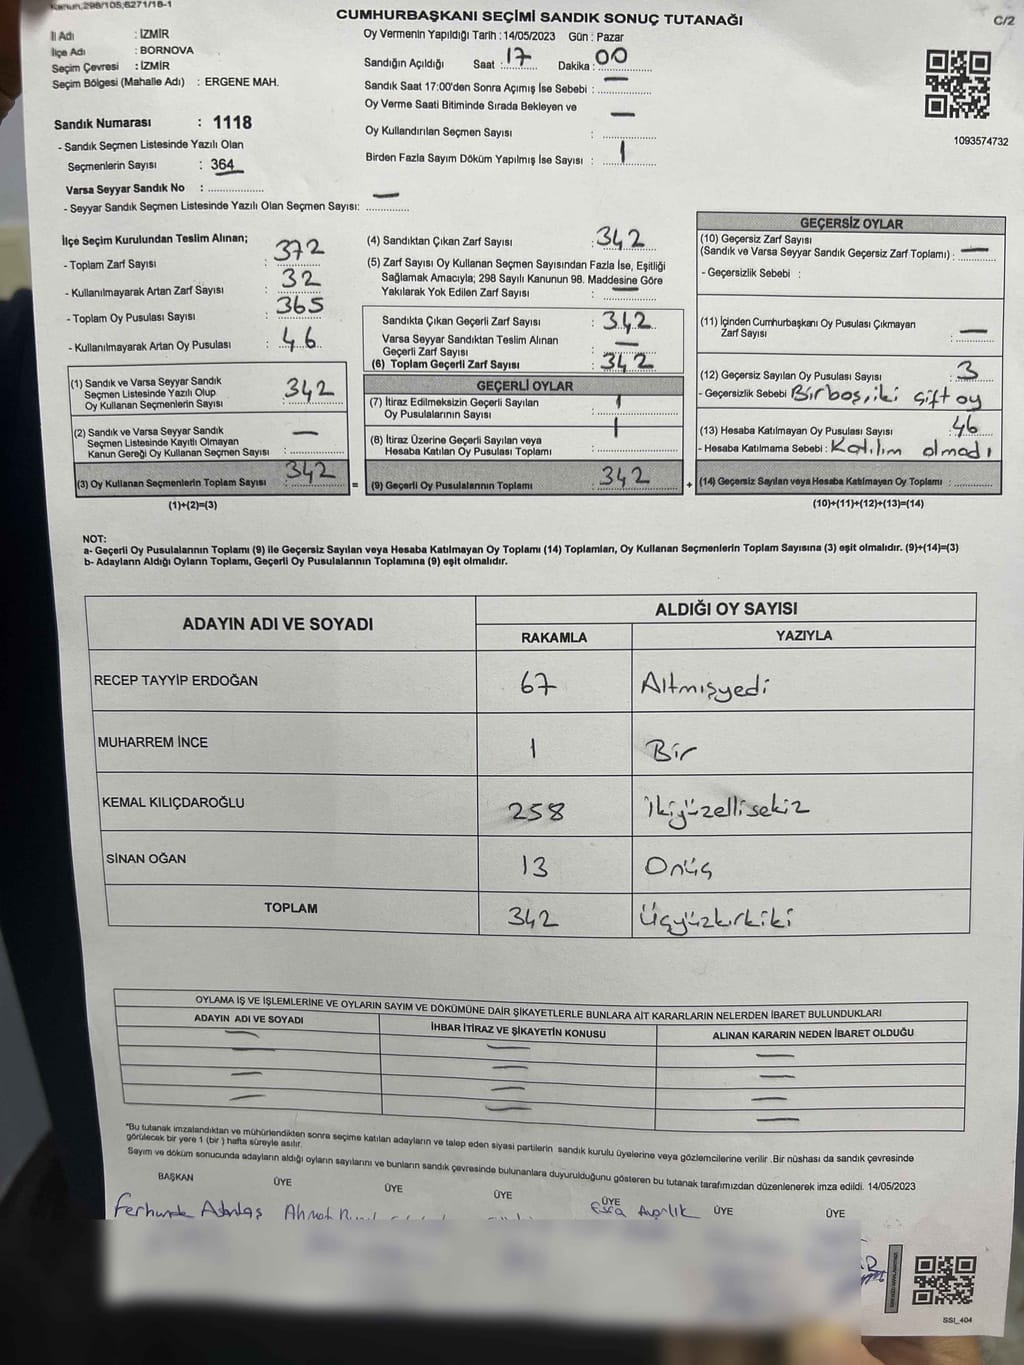 Kanun,298/105;6271/18-1
CUMHURBAŞKANI SEÇİMİ SANDIK SONUÇ TUTANAĞI
C/2
İl Adı : İZMİR
İlçe Adı : BORNOVA
Seçim Çevresi : İZMİR
Seçim Bölgesi (Mahalle Adı) : ERGENE MAH.
Oy Vermenin Yapıldığı Tarih : 14/05/2023 Gün : Pazar
Sandığın Açıldığı Saat : 17 Dakika : 00
Sandık Saat 17:00'den Sonra Açımış İse Sebebi : —
Oy Verme Saati Bitiminde Sırada Bekleyen ve
Oy Kullandırılan Seçmen Sayısı : —
Birden Fazla Sayım Döküm Yapılmış İse Sayısı : 1
1093574732
Sandık Numarası : 1118
- Sandık Seçmen Listesinde Yazılı Olan
Seçmenlerin Sayısı : 364
Varsa Seyyar Sandık No :
- Seyyar Sandık Seçmen Listesinde Yazılı Olan Seçmen Sayısı: —
İlçe Seçim Kurulundan Teslim Alınan;
- Toplam Zarf Sayısı : 372
- Kullanılmayarak Artan Zarf Sayısı : 32
- Toplam Oy Pusulası Sayısı : 365
- Kullanılmayarak Artan Oy Pusulası : 46
(1) Sandık ve Varsa Seyyar Sandık
Seçmen Listesinde Yazılı Olup
Oy Kullanan Seçmenlerin Sayısı : 342
(2) Sandık ve Varsa Seyyar Sandık
Seçmen Listesinde Kayıtlı Olmayan
Kanun Gereği Oy Kullanan Seçmen Sayısı : —
(3) Oy Kullanan Seçmenlerin Toplam Sayısı : 342
(1)+(2)=(3)
(4) Sandıktan Çıkan Zarf Sayısı : 342
(5) Zarf Sayısı Oy Kullanan Seçmen Sayısından Fazla İse, Eşitliği
Sağlamak Amacıyla; 298 Sayılı Kanunun 98. Maddesine Göre
Yakılarak Yok Edilen Zarf Sayısı : —
Sandıkta Çıkan Geçerli Zarf Sayısı : 342
Varsa Seyyar Sandıktan Teslim Alınan
Geçerli Zarf Sayısı : —
(6) Toplam Geçerli Zarf Sayısı : 342
GEÇERLİ OYLAR
(7) İtiraz Edilmeksizin Geçerli Sayılan
Oy Pusulalarının Sayısı : 1
(8) İtiraz Üzerine Geçerli Sayılan veya
Hesaba Katılan Oy Pusulası Toplamı : 1
= (9) Geçerli Oy Pusulalarının Toplamı : 342 +
GEÇERSİZ OYLAR
(10) Geçersiz Zarf Sayısı
(Sandık ve Varsa Seyyar Sandık Geçersiz Zarf Toplamı) : —
- Geçersizlik Sebebi :
(11) İçinden Cumhurbaşkanı Oy Pusulası Çıkmayan
Zarf Sayısı : —
(12) Geçersiz Sayılan Oy Pusulası Sayısı : 3
- Geçersizlik Sebebi Bir boş, iki çift oy
(13) Hesaba Katılmayan Oy Pusulası Sayısı : 46
- Hesaba Katılmama Sebebi : Katılım olmadı
(14) Geçersiz Sayılan veya Hesaba Katılmayan Oy Toplamı :
(10)+(11)+(12)+(13)=(14)
NOT:
a- Geçerli Oy Pusulalarının Toplamı (9) ile Geçersiz Sayılan veya Hesaba Katılmayan Oy Toplamı (14) Toplamları, Oy Kullanan Seçmenlerin Toplam Sayısına (3) eşit olmalıdır. (9)+(14)=(3)
b- Adayların Aldığı Oyların Toplamı, Geçerli Oy Pusulalarının Toplamına (9) eşit olmalıdır.
ADAYIN ADI VE SOYADI
ALDIĞI OY SAYISI
RAKAMLA YAZIYLA
RECEP TAYYİP ERDOĞAN 67 Altmışyedi
MUHARREM İNCE 1 Bir
KEMAL KILIÇDAROĞLU 258 İkiyüzellisekiz
SİNAN OĞAN 13 Onüç
TOPLAM 342 Üçyüzkırkiki
OYLAMA İŞ VE İŞLEMLERİNE VE OYLARIN SAYIM VE DÖKÜMÜNE DAİR ŞİKAYETLERLE BUNLARA AİT KARARLARIN NELERDEN İBARET BULUNDUKLARI
ADAYIN ADI VE SOYADI İHBAR İTİRAZ VE ŞİKAYETİN KONUSU ALINAN KARARIN NEDEN İBARET OLDUĞU
— — —
— — —
— — —
— — —
*Bu tutanak imzalandıktan ve mühürlendikten sonra seçime katılan adayların ve talep eden siyasi partilerin sandık kurulu üyelerine veya gözlemcilerine verilir .Bir nüshası da sandık çevresinde
görülecek bir yere 1 (bir ) hafta süreyle asılır.
Sayım ve döküm sonucunda adayların aldığı oyların sayılarını ve bunların sandık çevresinde bulunanlara duyurulduğunu gösteren bu tutanak tarafımızdan düzenlenerek imza edildi. 14/05/2023
BAŞKAN ÜYE ÜYE ÜYE ÜYE ÜYE ÜYE
Ahmet Esra
SSI_404